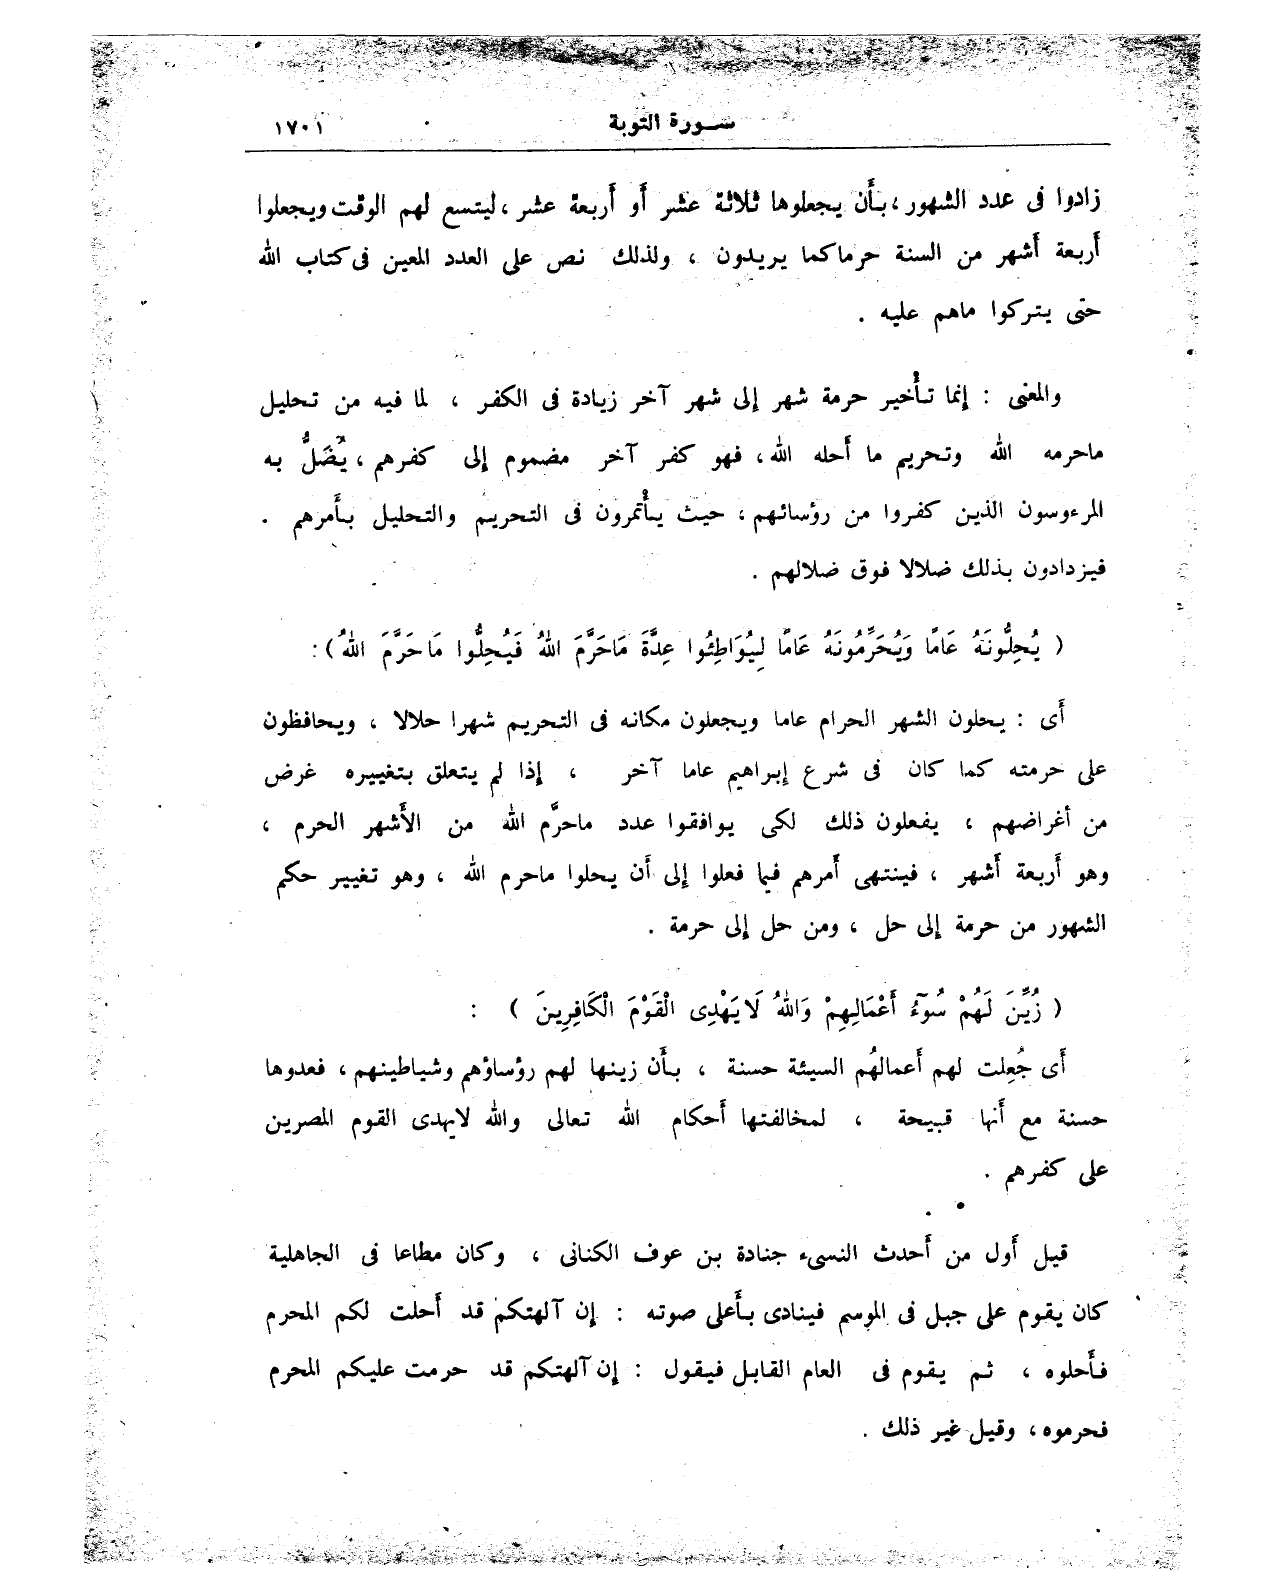 ســورة التوبة
١٧٠١
زادوا فى عدد الشهور ، بأن يجعلوها ثلاثة عشر أو أربعة عشر ، ليتسع لهم الوقت ويجعلوا
أربعة أشهر من السنة حرما كما يريدون ، ولذلك نص على العدد المعين فى كتاب الله
حتى يتركوا ماهم عليه .
والمعنى : إنما تأخير حرمة شهر إلى شهر آخر زيادة فى الكفر ، لما فيه من تحليل
ماحرمه الله وتحريم ما أحله الله ، فهو كفر آخر مضموم إلى كفرهم ، يُضَلُّ به
المرءوسون الذين كفروا من رؤسائهم ، حيث يأتمرون فى التحريم والتحليل بأمرهم .
فيزدادون بذلك ضلالا فوق ضلالهم .
( يُحِلُّونَهُ عَامًا وَيُحَرِّمُونَهُ عَامًا لِيُوَاطِئُوا عِدَّةَ مَاحَرَّمَ اللهُ فَيُحِلُّوا مَاحَرَّمَ اللهُ ) :
أى : يحلون الشهر الحرام عاما ويجعلون مكانه فى التحريم شهرا حلالا ، ويحافظون
على حرمته كما كان فى شرع إبراهيم عاما آخر ، إذا لم يتعلق بتغييره غرض
من أغراضهم ، يفعلون ذلك لكى يوافقوا عدد ماحرَّم الله من الأشهر الحرم ،
وهو أربعة أشهر ، فينتهى أمرهم فيما فعلوا إلى أن يحلوا ماحرم الله ، وهو تغيير حكم
الشهور من حرمة إلى حل ، ومن حل إلى حرمة .
( زُيِّنَ لَهُمْ سُوٓءُ أَعْمَالِهِمْ وَاللهُ لَا يَهْدِى الْقَوْمَ الْكَافِرِينَ ) :
أى جُعِلت لهم أعمالهُم السيئة حسنة ، بأن زينها لهم رؤساؤهم وشياطينهم ، فعدوها
حسنة مع أنها قبيحة ، لمخالفتها أحكام الله تعالى والله لايهدى القوم المصرين
على كفرهم .
قيل أول من أحدث النسىء جنادة بن عوف الكنانى ، وكان مطاعا فى الجاهلية
كان يقوم على جبل فى الموسم فينادى بأعلى صوته : إن آلهتكم قد أحلت لكم المحرم
فأحلوه ، ثم يقوم فى العام القابل فيقول : إن آلهتكم قد حرمت عليكم المحرم
فحرموه ، وقيل غير ذلك .